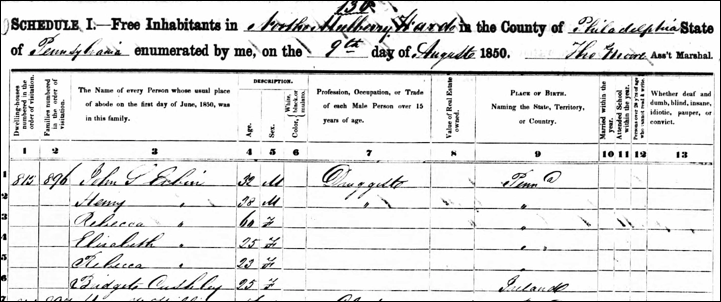 130
SCHEDULE I.—Free Inhabitants in North Mulberry Ward in the County of Philadelphia State
of Pennsylvania enumerated by me, on the 9th day of August 1850. Tho Moore Ass't Marshal.
Dwelling-houses numbered in the order of visitation.
Families numbered in the order of visitation.
The Name of every Person whose usual place of abode on the first day of June, 1850, was in this family.
DESCRIPTION.
Age.
Sex.
Color, White, black, or mulatto.
Profession, Occupation, or Trade of each Male Person over 15 years of age.
Value of Real Estate owned.
PLACE OF BIRTH.
Naming the State, Territory, or Country.
Married within the year.
Attended School within the year.
Persons over 20 y'rs of age who cannot read & write.
Whether deaf and dumb, blind, insane, idiotic, pauper, or convict.
1 2 3 4 5 6 7 8 9 10 11 12 13
1 815 896 John S 32 M Druggist Penn a
2 Henry " 28 M " "
3 Rebecca " 60 F "
4 Elizabeth " 25 F " "
5 Rebecca " 23 F "
6 Bridget 25 F Ireland